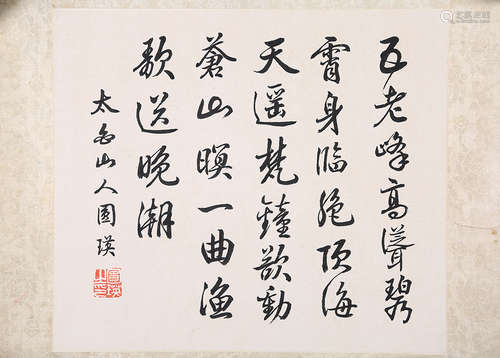 五老峰高聳碧
霄身臨絶頂海
天遥梵鐘欲動
蒼山暝一曲漁
歌送晚潮
太白山人圓瑛